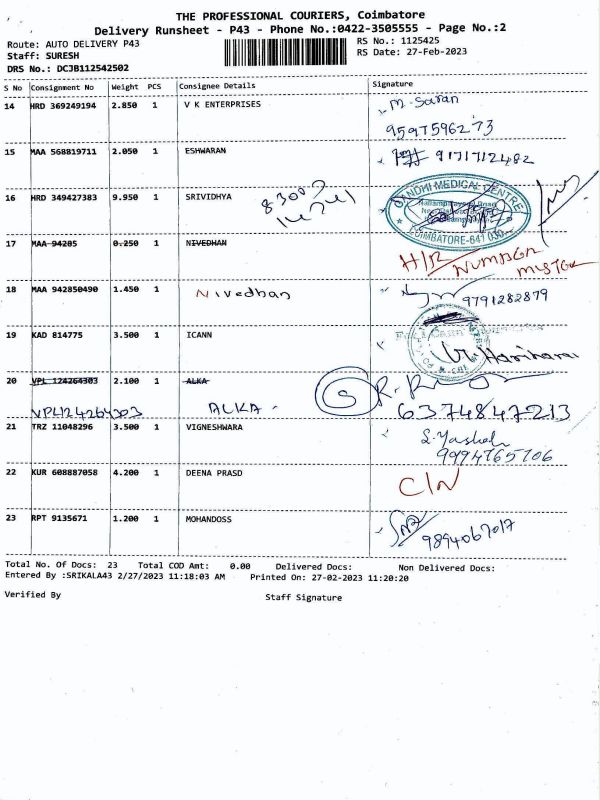 THE PROFESSIONAL COURIERS, Coimbatore
Delivery Runsheet - P43 - Phone No.:0422-3505555 - Page No.:2
Route: AUTO DELIVERY P43
RS No.: 1125425
Staff: SURESH
RS Date: 27-Feb-2023
DRS No.: DCJB112542502
S No Consignment No Weight PCS Consignee Details Signature
14 HRD 369249194 2.850 1 V K ENTERPRISES M. Saran
9597596273
15 MAA 568819711 2.050 1 ESHWARAN 9171712482
16 HRD 349427383 9.950 1 SRIVIDHYA
GANDHI MEDICAL CENTRE
COIMBATORE-641
17 MAA 94285 0.250 1 NIVEDHAN
H/R NUMBER
18 MAA 942850490 1.450 1 Nivedhan 9791282879
19 KAD 814775 3.500 1 ICANN
20 VPL 124264303 2.100 1 ALKA
VPL124264303 ALKA - S 6374847213
21 TRZ 11048296 3.500 1 VIGNESHWARA
9994765706
22 KUR 608887058 4.200 1 DEENA PRASD C/N
23 RPT 9135671 1.200 1 MOHANDOSS
9894067017
Total No. Of Docs: 23 Total COD Amt: 0.00 Delivered Docs: Non Delivered Docs:
Entered By :SRIKALA43 2/27/2023 11:18:03 AM Printed On: 27-02-2023 11:20:20
Verified By Staff Signature